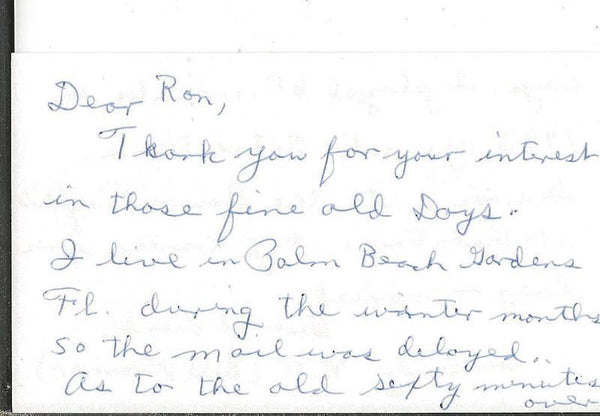 Dear Ron,
Thank you for your interest
in those fine old Days.
I live in Palm Beach Gardens
Fl. during the winter months
so the mail was delayed..
As to the old sexty minutes
over